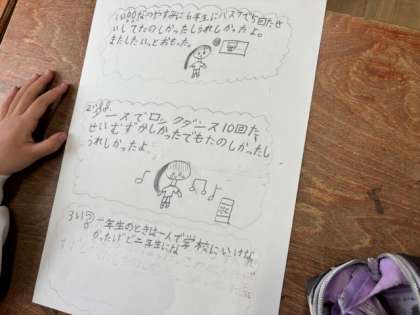 なつやすみに6年生にバスケで5回たせ
いしてたのしかったしうれしかったよ。
またしたいっとおもった。
スでロックダンス10回たっ
せいむずかしかったでもたのしかったし
うれしかったよ
3い 一年生のときは一人で学校にいけな
かったけど二年生にな